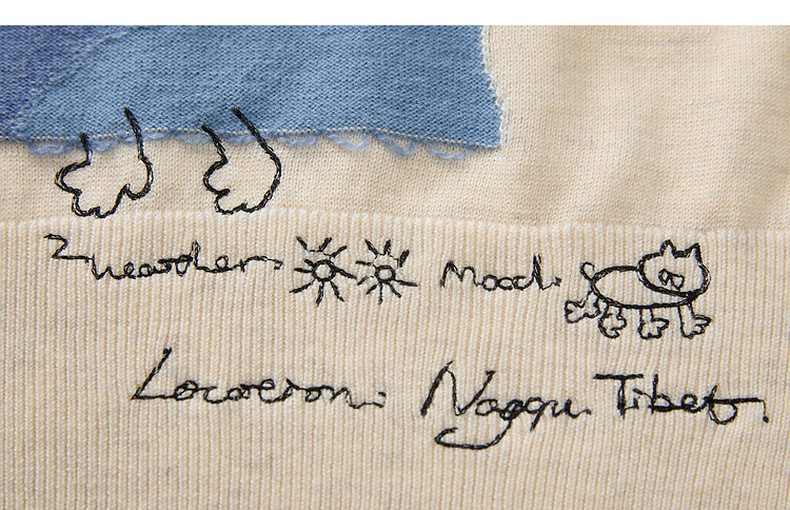 Weather: Mood:
Location: Nagqu. Tibet.